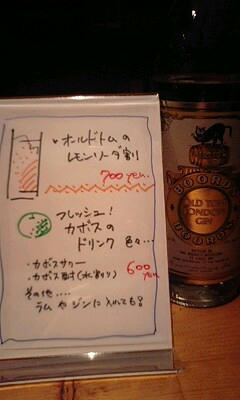 ・オールドトムの
レモンソーダ割
700 yen.
フレッシュ!
カボスの
ドリンク 色々…
・カボスサワー
・カボス酎(水割り)
600 yen
その他‥‥
ラムやジンに入れても!
BOORD'S
OLD TOM
LONDON
GIN